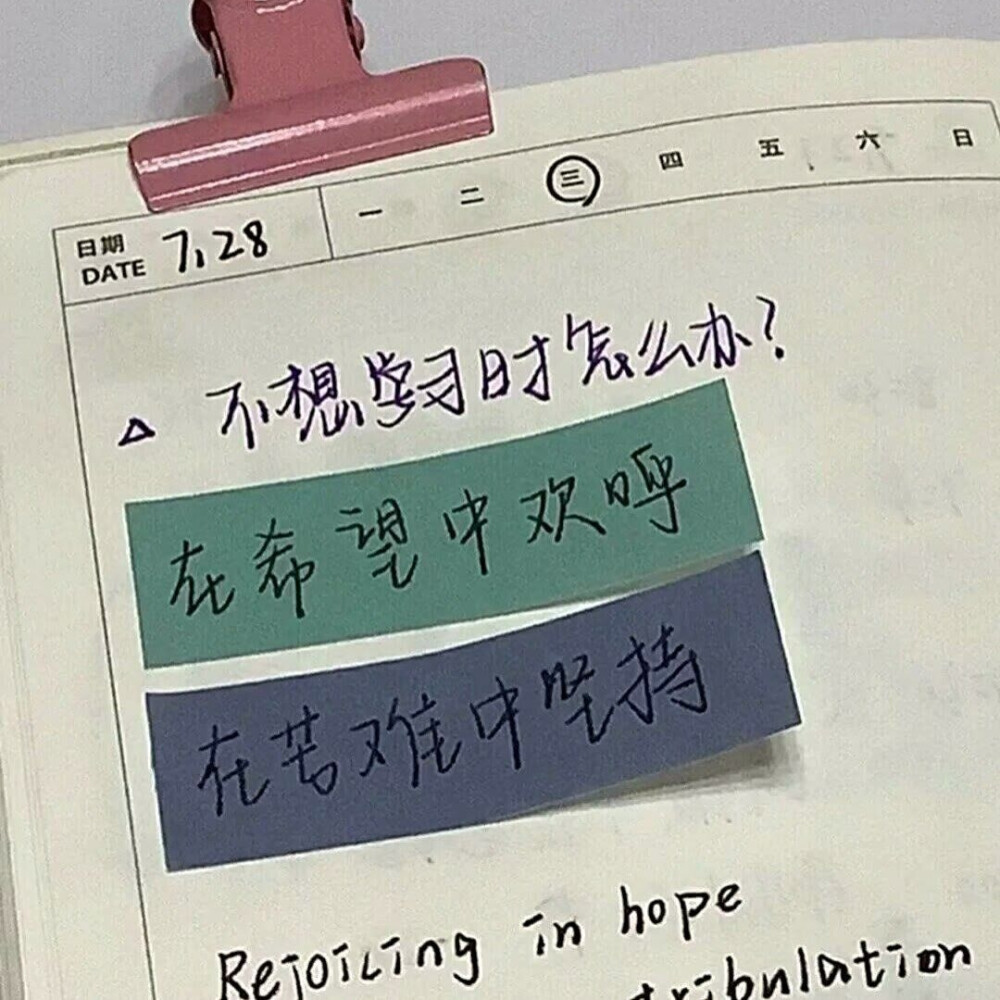 日期 DATE 7.28 一 二 三 四 五 六 日
△ 不想学习时怎么办?
在希望中欢呼
在苦难中坚持
Rejoicing in hope
tribulation